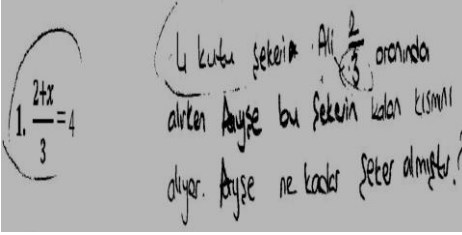 1. \frac{2+x}{3}=4
4 kutu şekerin Ali \frac{2}{3} oranında
alırken Ayşe bu şekerin kalan kısmını
alıyor. Ayşe ne kadar şeker almıştır?